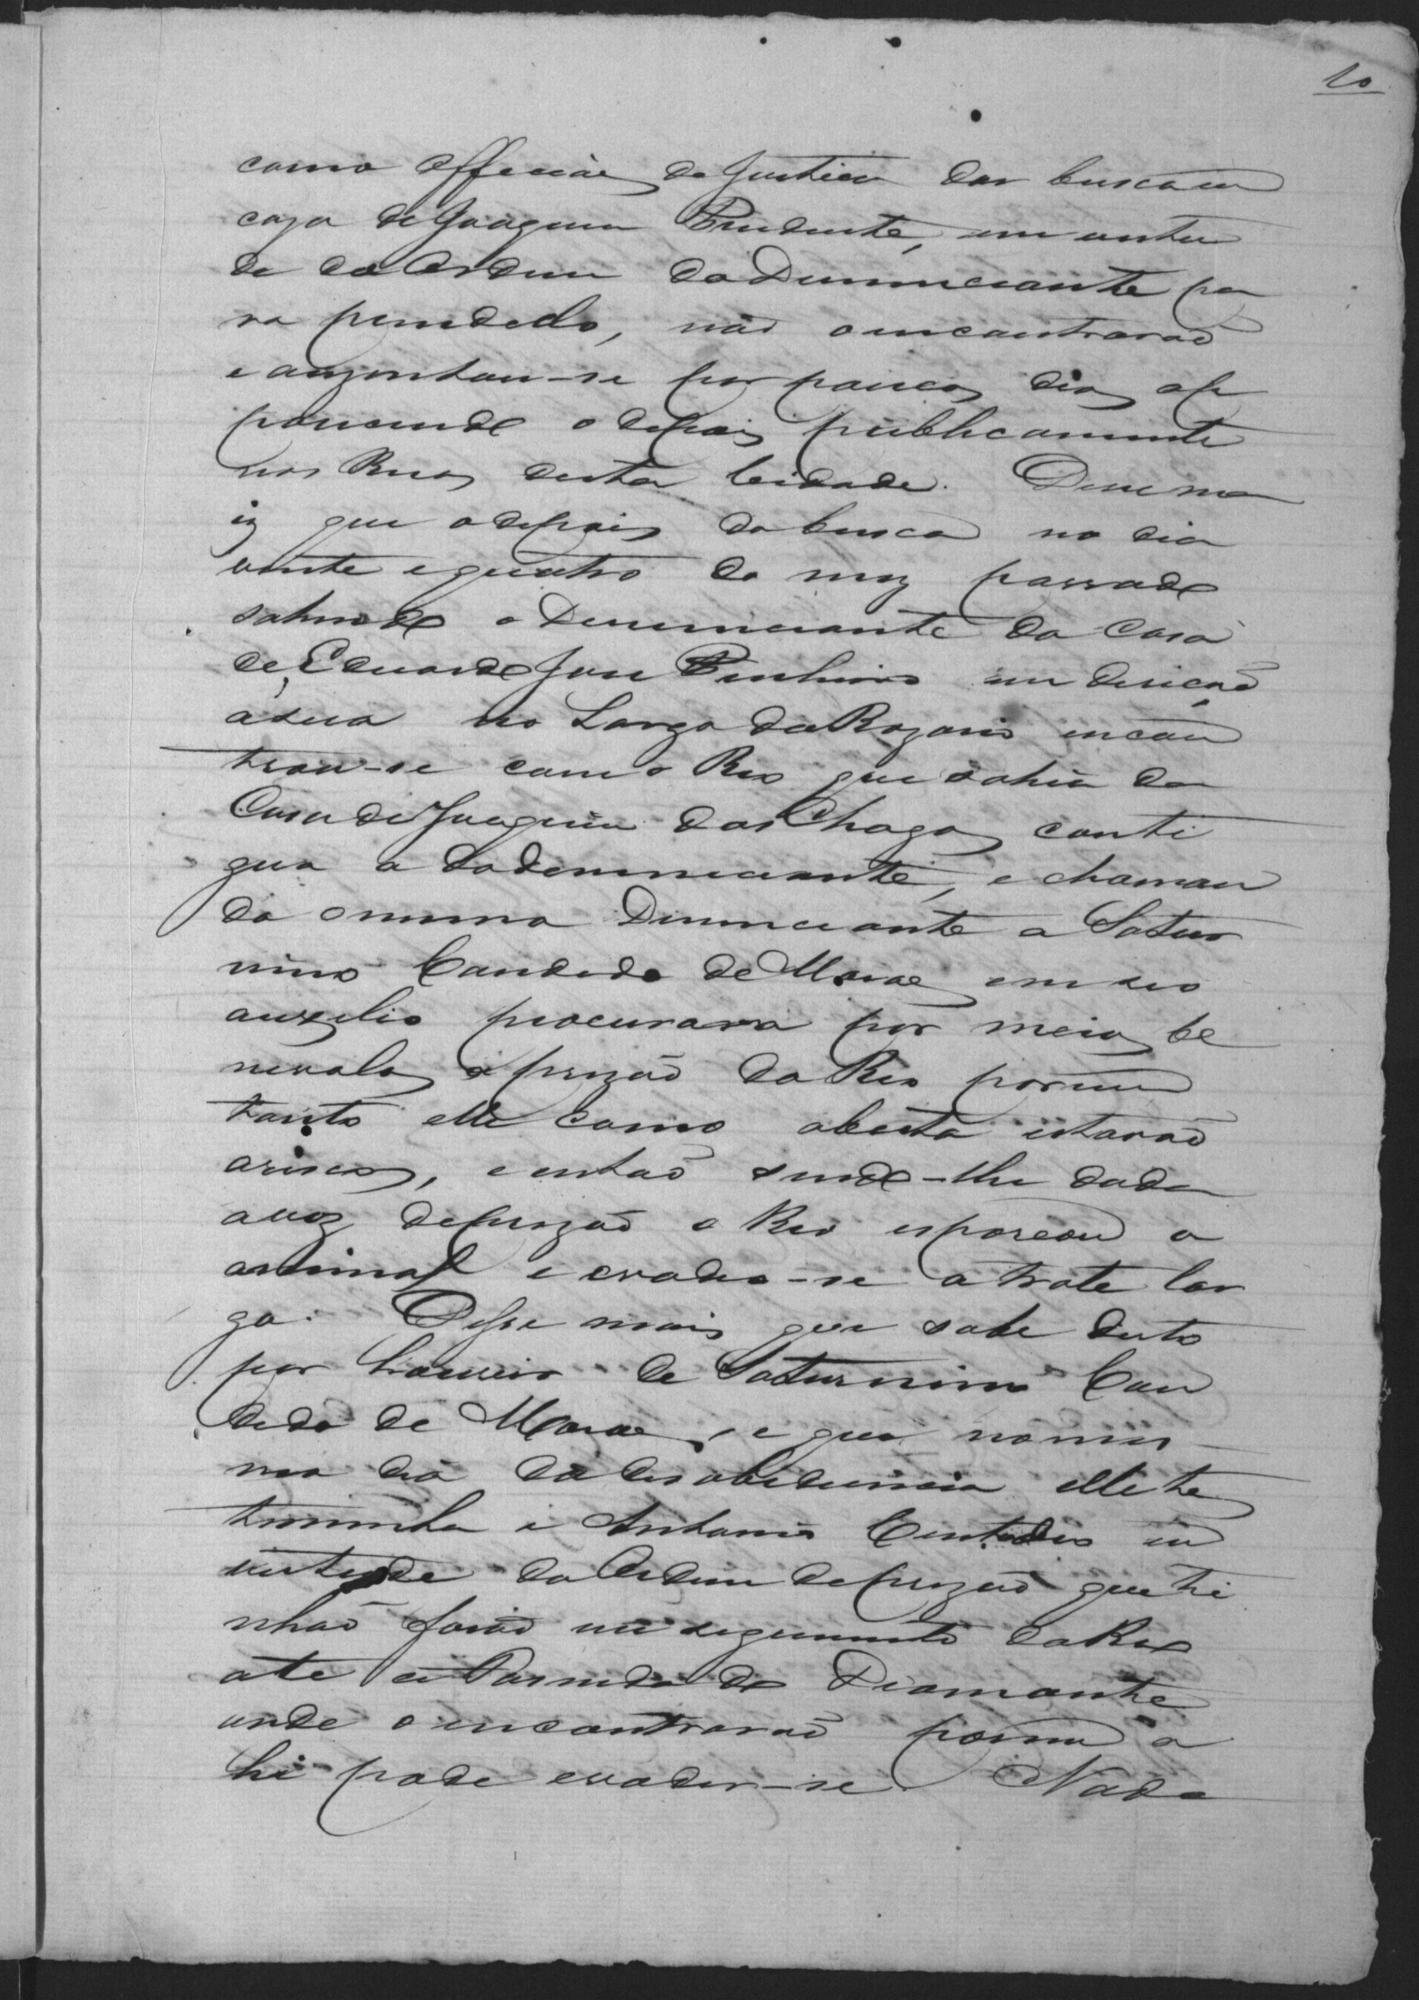 10
como officiaes de Justiça dar busca em
caza de Joaquim Prudente, em virtu
de da Ordem do Denunciante pa
ra prendelo, não o encontrarão
e auzentou-se por poucos dias ap
parecendo o depois publicamente
nas Ruas desta Cidade. Disse ma
is que o depois da busca no dia
vinte e quatro do mez passado
sahindo o Denunciante da Casa
de Eduardo José Pinheiro em direção
a sua no Largo do Rozario encon
trou-se com o Reo que sahia da
Casa de Joaquim das Chagas conti
gua a do denunciante, e chaman
do o mesmo Denunciante a Satur
nino Candido de Moraes em seo
auxilio procurava por meios be
nevolos a prizão do Reo porem
tanto elle como a besta estavão
ariscos, e então sendo-lhe dada
a voz de prizão o Reo esporeou o
animal e evadio-se a trote lar
go. Disse mais que sabe disto
por lhe de Saturnino Can
dido de Moraes, e que no mes
mo dia da desobediencia elle tes
timunha e Antonio Custodio em
virtude da Ordem de prizão que ti
nhão forão em seguimento do Reo
ate a do Diamante
onde o encontrarão porem a
hi pode evadir-se. Nada